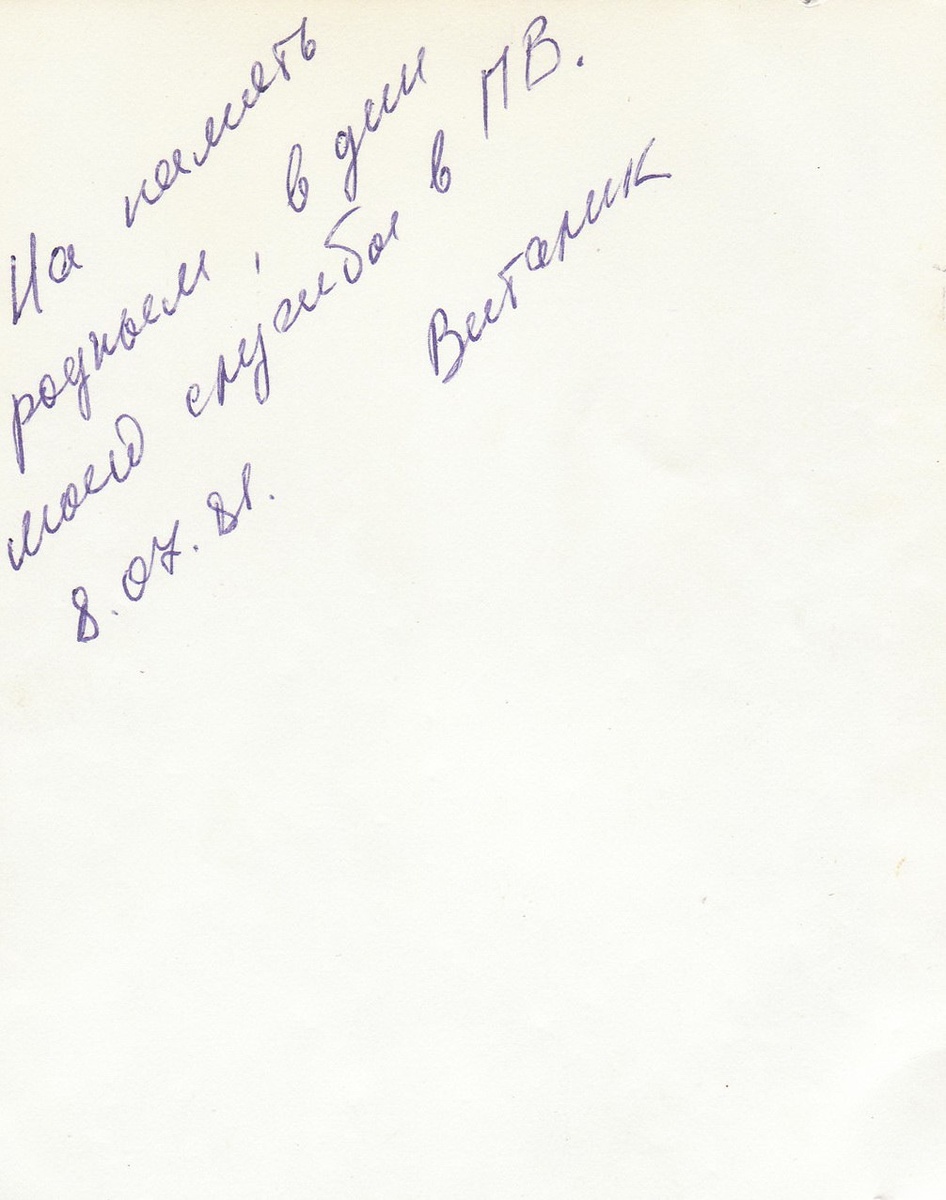 На память
родным, в дни
моей службы в ПВ.
Виталик
8.07.81.